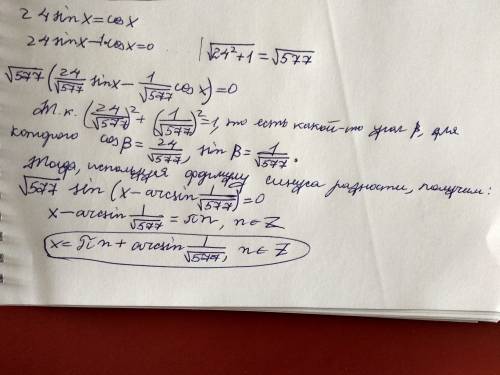 24 sin x = cos x
24 sin x - 1 cos x = 0 | √(24² + 1) = √577
√577 (24/√577 sin x - 1/√577 cos x) = 0
Т.к. (24/√577)² + (1/√577)² = 1, то есть какой-то угол β, для
которого cos β = 24/√577, sin β = 1/√577.
Тогда, используя формулу синуса разности, получим:
√577 sin (x - arcsin 1/√577) = 0
x - arcsin 1/√577 = πn, n ∈ Z
x = πn + arcsin 1/√577, n ∈ Z